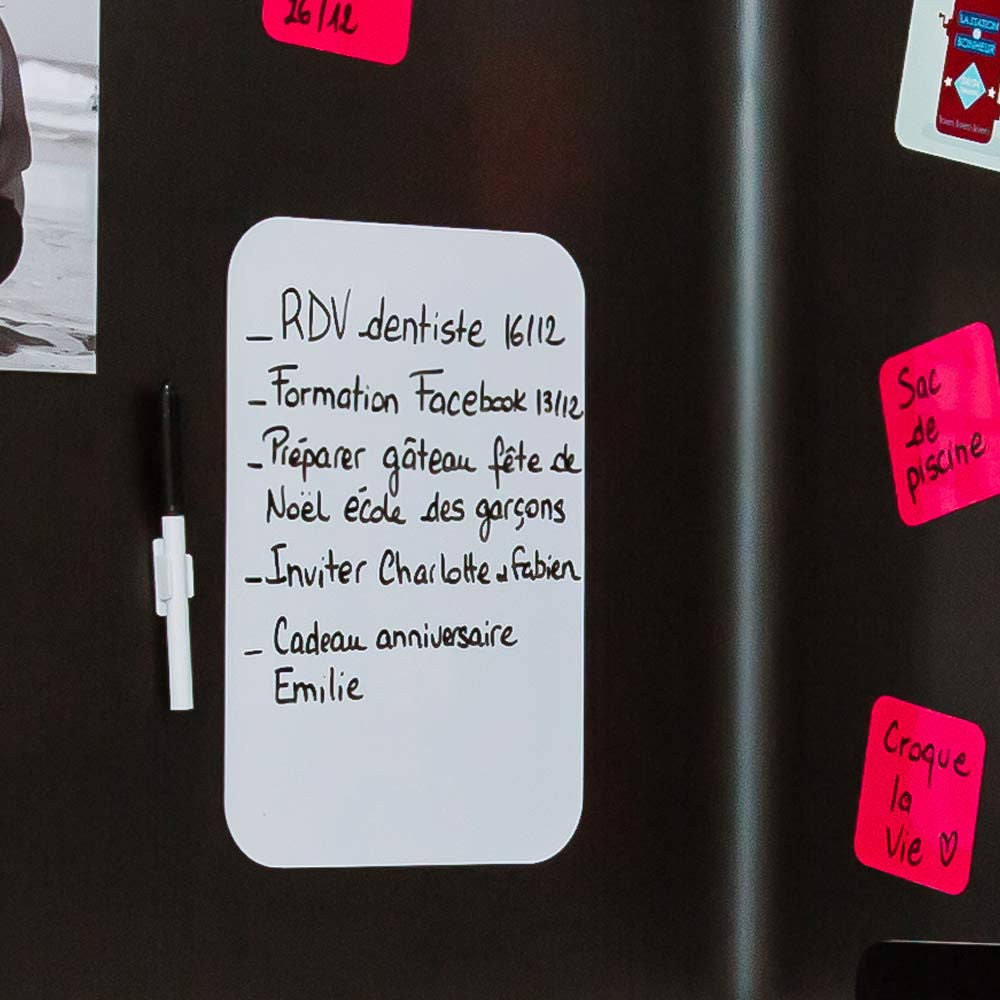 26/12
LA STATION
BONHEUR
– RDV dentiste 16/12
– Formation Facebook 13/12
– Préparer gâteau fête de
Noël école des garçons
– Inviter Charlotte & Fabien
– Cadeau anniversaire
Emilie
Sac
de
piscine
Croque
la
Vie ♡